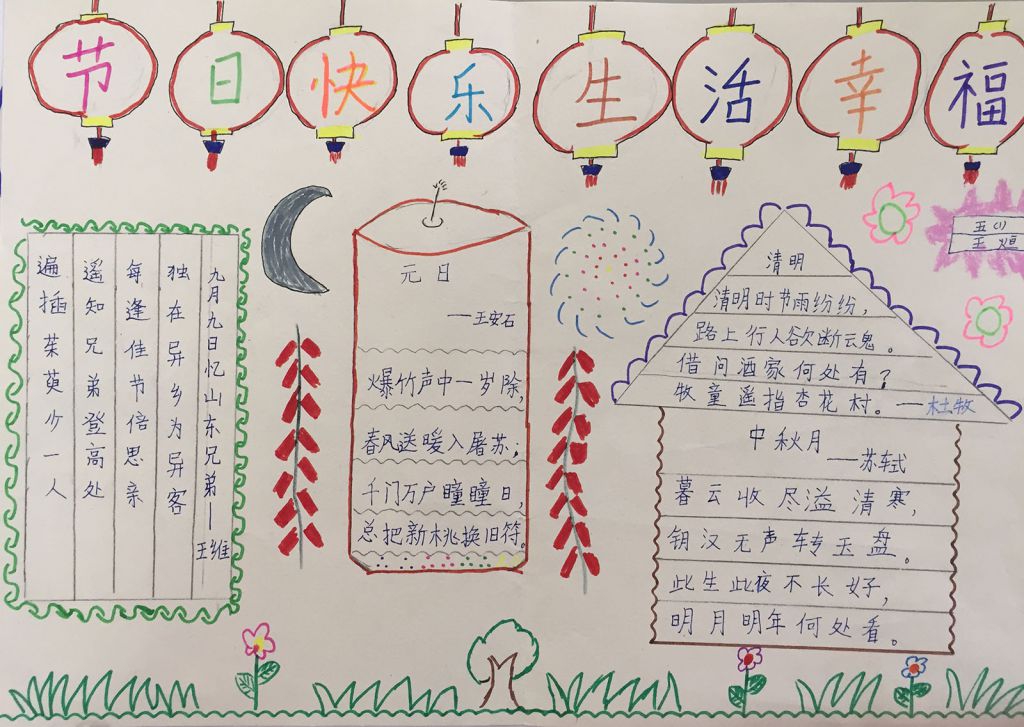 节日快乐生活幸福
九月九日忆山东兄弟—王维
独在异乡为异客
每逢佳节倍思亲
遥知兄弟登高处
遍插茱萸少一人
元日
—王安石
爆竹声中一岁除,
春风送暖入屠苏;
千门万户瞳瞳日,
总把新桃换旧符。
清明
清明时节雨纷纷,
路上行人欲断魂。
借问酒家何处有?
牧童遥指杏花村。—杜牧
中秋月
—苏轼
暮云收尽溢清寒,
钥汉无声转玉盘。
此生此夜不长好,
明月明年何处看。